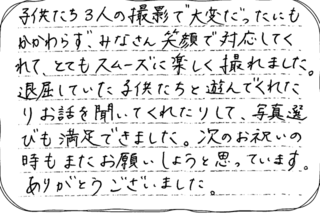 子供たち3人の撮影で大変だったにも
かかわらず、みなさん笑顔で対応してく
れて、とてもスムーズに楽しく撮れました。
退屈していた子供たちと遊んでくれた
りお話を聞いてくれたりして、写真選
びも満足できました。次のお祝いの
時もまたお願いしようと思っています。
ありがとうございました。